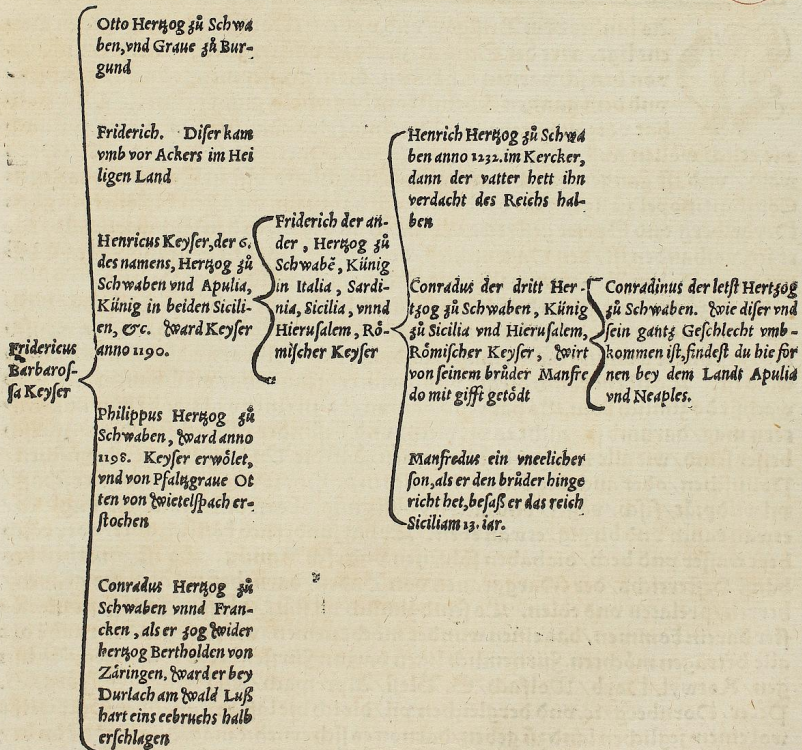 Fridericus
Barbaros-
sa Keyser
Otto Hertzog zů Schwa
ben, vnd Graue zů Bur-
gund
Friderich. Diser kam
vmb vor Ackers im Hei
ligen Land
Henricus Keyser, der 6.
des namens, Hertzog zů
Schwaben vnd Apulia,
Künig in beiden Sicili-
en, &c. Ward Keyser
anno 1190.
Philippus Hertzog zů
Schwaben, Ward anno
1198. Keyser erwölet,
vnd von Pfaltzgraue Ot
ten von Wietelspach er-
stochen
Conradus Hertzog zů
Schwaben vnnd Fran-
cken, als er zog Wider
hertzog Bertholden von
Zäringen, Ward er bey
Durlach am Wald Luß
hart eins eebruchs halb
erschlagen
Friderich der an-
der, Hertzog zů
Schwabē, Künig
in Italia, Sardi-
nia, Sicilia, vnnd
Hierusalem, Rö-
mischer Keyser
Henrich Hertzog zů Schwa
ben anno 1232. im Kercker,
dann der vatter hett ihn
verdacht des Reichs hal-
ben
Conradus der dritt Her-
tzog zů Schwaben, Künig
zů Sicilia vnd Hierusalem,
Römischer Keyser, Wirt
von seinem brůder Manfre
do mit gifft getödt
Manfredus ein vneelicher
son, als er den brůder hinge
richt het, besaß er das reich
Siciliam 13. iar.
Conradinus der letst Hertzog
zů Schwaben. Wie diser vnd
sein gantz Geschlecht vmb-
kommen ist, findest du hie for
nen bey dem Landt Apulia
vnd Neaples.